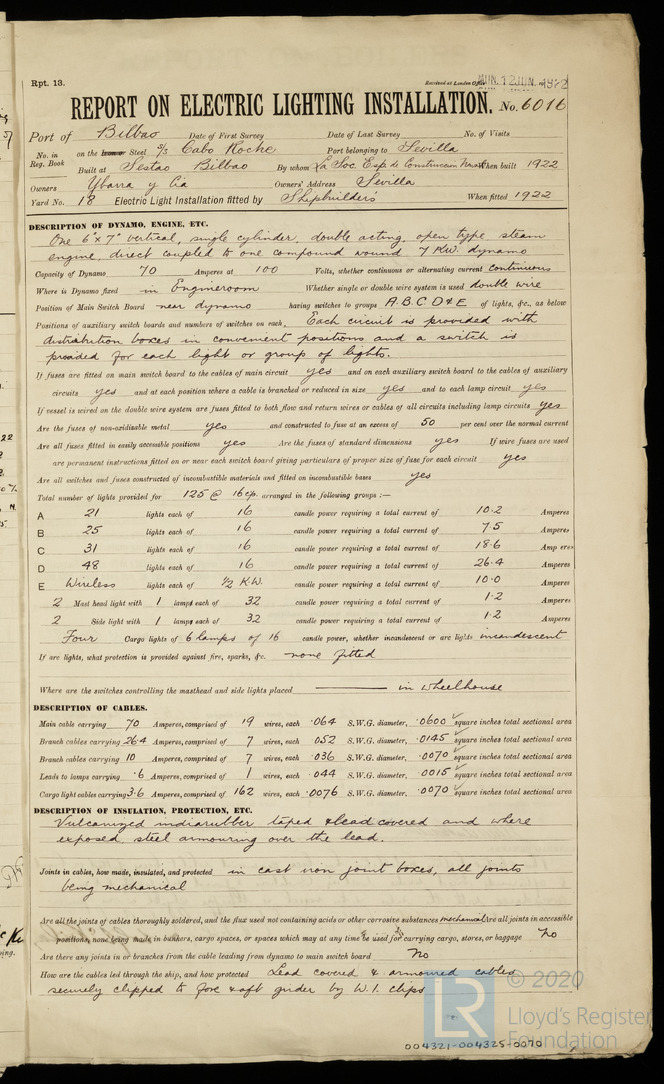 Rpt. 13.
Received at London Office MON. 12 JUN. 1922
REPORT ON ELECTRIC LIGHTING INSTALLATION. No. 6016
Port of Bilbao Date of First Survey Date of Last Survey No. of Visits
No. in Reg. Book on the Iron or Steel S/S Cabo Roche Port belonging to Sevilla
Built at Sestao Bilbao By whom La Soc. Esp. de Construccion When built 1922
Owners Ybarra y Cia Owners' Address Sevilla
Yard No. 18 Electric Light Installation fitted by Shipbuilders When fitted 1922
DESCRIPTION OF DYNAMO, ENGINE, ETC.
One 6" x 7" vertical, single cylinder, double acting, open type steam
engine, direct coupled to one compound wound 7 KW. dynamo
Capacity of Dynamo 70 Amperes at 100 Volts, whether continuous or alternating current continuous
Where is Dynamo fixed in Engineroom Whether single or double wire system is used double wire
Position of Main Switch Board near dynamo having switches to groups A. B. C. D & E of lights, &c., as below
Positions of auxiliary switch boards and numbers of switches on each. Each circuit is provided with
distribution boxes in convenient positions and a switch is
provided for each light or group of lights.
If fuses are fitted on main switch board to the cables of main circuit yes and on each auxiliary switch board to the cables of auxiliary
circuits yes and at each position where a cable is branched or reduced in size yes and to each lamp circuit yes
If vessel is wired on the double wire system are fuses fitted to both flow and return wires or cables of all circuits including lamp circuits yes
Are the fuses of non-oxidizable metal yes and constructed to fuse at an excess of 50 per cent over the normal current
Are all fuses fitted in easily accessible positions yes Are the fuses of standard dimensions yes If wire fuses are used
are permanent instructions fitted on or near each switch board giving particulars of proper size of fuse for each circuit yes
Are all switches and fuses constructed of incombustible materials and fitted on incombustible bases yes
Total number of lights provided for 125 @ 16 cp. arranged in the following groups :—
A 21 lights each of 16 candle power requiring a total current of 10.2 Amperes
B 25 lights each of 16 candle power requiring a total current of 7.5 Amperes
C 31 lights each of 16 candle power requiring a total current of 18.6 Amperes
D 48 lights each of 16 candle power requiring a total current of 26.4 Amperes
E Wireless lights each of 1/2 K.W. candle power requiring a total current of 10.0 Amperes
2 Mast head light with 1 lamps each of 32 candle power requiring a total current of 1.2 Amperes
2 Side light with 1 lamps each of 32 candle power requiring a total current of 1.2 Amperes
Four Cargo lights of 6 lamps of 16 candle power, whether incandescent or arc lights incandescent
If arc lights, what protection is provided against fire, sparks, &c. none fitted
Where are the switches controlling the masthead and side lights placed in wheelhouse
DESCRIPTION OF CABLES.
Main cable carrying 70 Amperes, comprised of 19 wires, each .064 S.W.G. diameter, .0600 square inches total sectional area
Branch cables carrying 26.4 Amperes, comprised of 7 wires, each .052 S.W.G. diameter, .0145 square inches total sectional area
Branch cables carrying 10 Amperes, comprised of 7 wires, each .036 S.W.G. diameter, .0070 square inches total sectional area
Leads to lamps carrying .6 Amperes, comprised of 1 wires, each .044 S.W.G. diameter, .0015 square inches total sectional area
Cargo light cables carrying 3.6 Amperes, comprised of 162 wires, each .0076 S.W.G. diameter, .0070 square inches total sectional area
DESCRIPTION OF INSULATION, PROTECTION, ETC.
Vulcanized indiarubber taped & lead covered and where
exposed steel armouring over the lead.
Joints in cables, how made, insulated, and protected in cast iron joint boxes, all joints
being mechanical
Are all the joints of cables thoroughly soldered, and the flux used not containing acids or other corrosive substances mechanical Are all joints in accessible
positions, none being made in bunkers, cargo spaces, or spaces which may at any time be used for carrying cargo, stores, or baggage No
Are there any joints in or branches from the cable leading from dynamo to main switch board No
How are the cables led through the ship, and how protected Lead covered & armoured cables
securely clipped to fore & aft girder by W. I. clips
© 2020
LR
Lloyd's Register
Foundation
004321-004325-0070